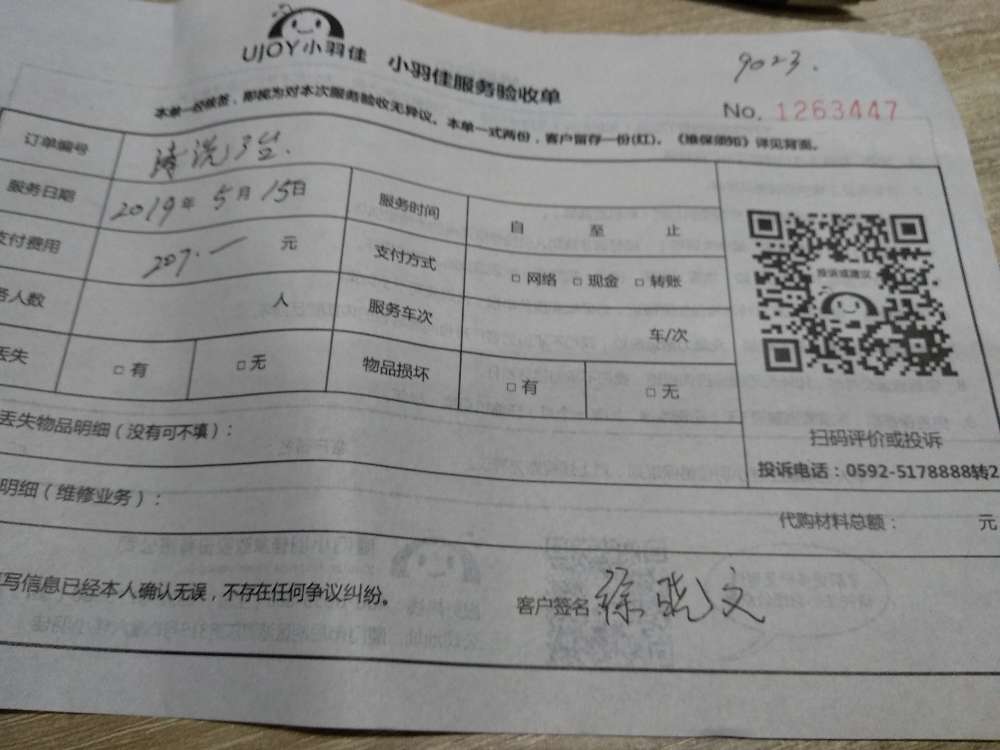 UJOY小羽佳 小羽佳服务验收单
9023.
No. 1263447
本单一经签, 即视为对本次服务验收无异议。本单一式两份，客户留存一份(红)。《维保须知》详见背面。
订单编号 清洗3台.
服务日期 2019年5月15日 服务时间 自 至 止
支付费用 207.一 元 支付方式 □ 网络 □ 现金 □ 转账
务人数 人 服务车次 车/次
丢失 □ 有 □ 无 物品损坏 □ 有 □ 无
投诉或建议
扫码评价或投诉
投诉电话：0592-5178888转2
丢失物品明细（没有可不填）：
明细（维修业务）：
代购材料总额： 元
写信息已经本人确认无误，不存在任何争议纠纷。
客户签名 徐晓文